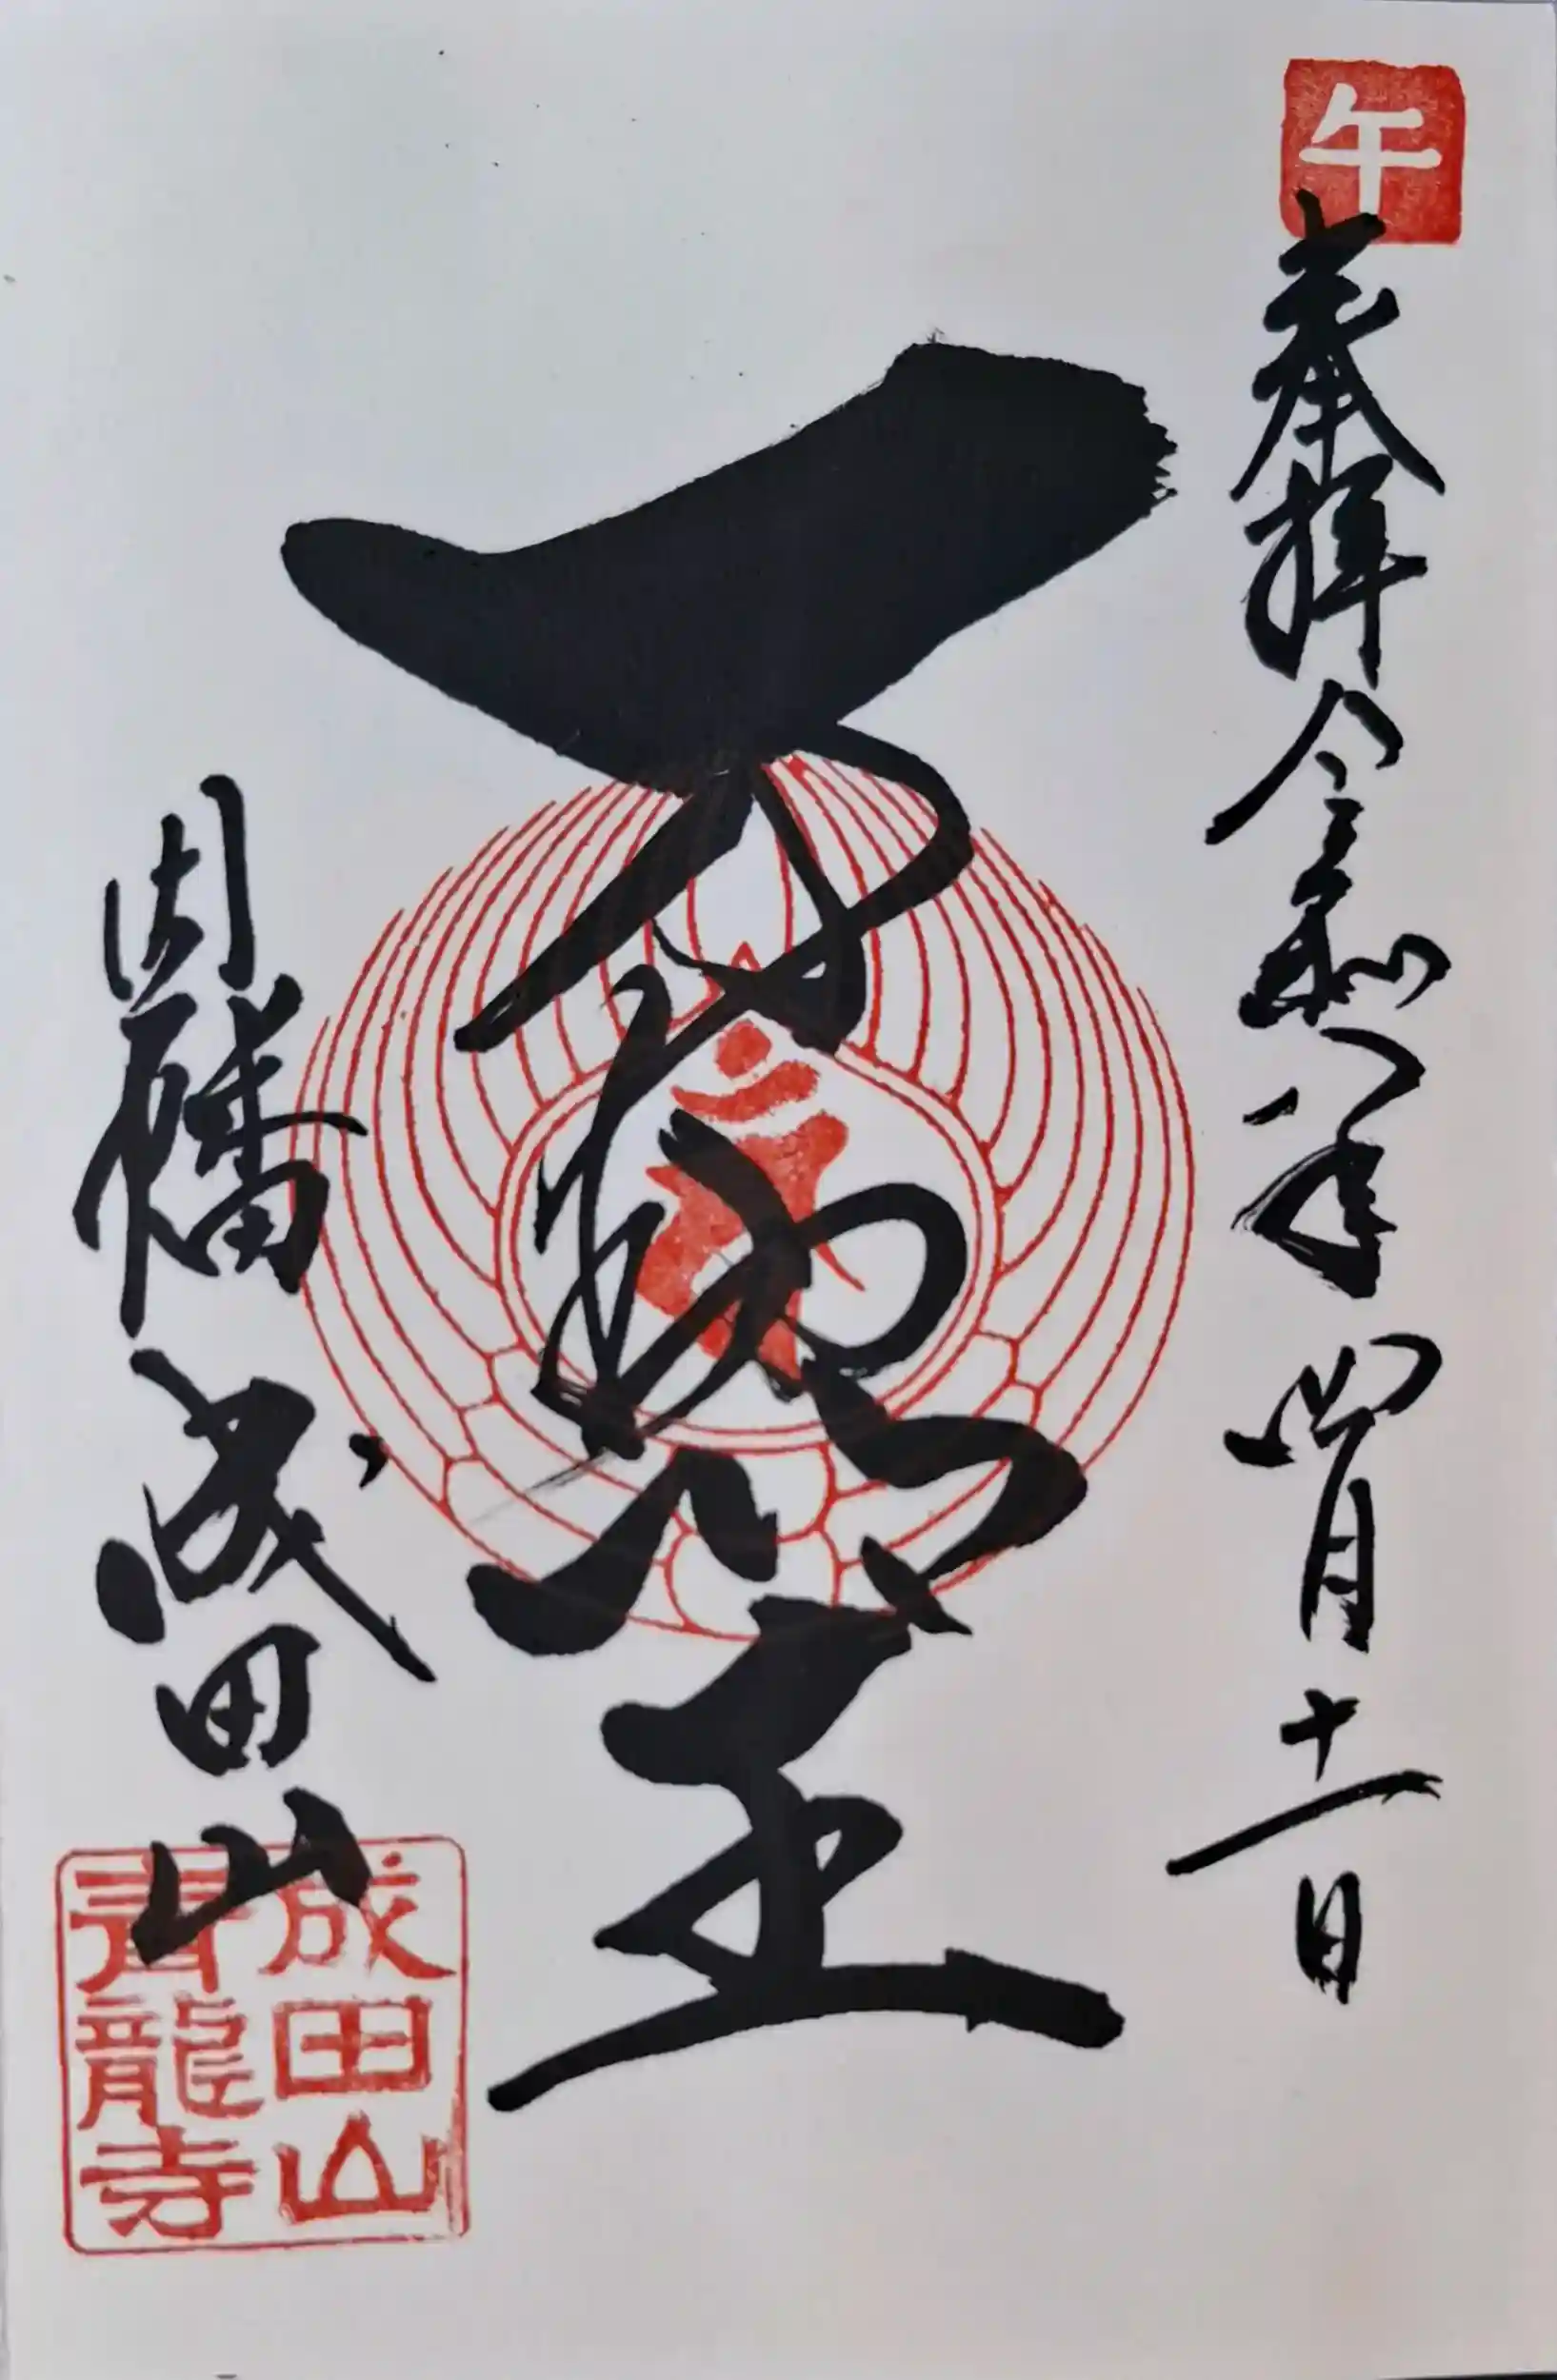 午
奉拝 令和八年 四月十一日
不動明王
因幡 成田山
成田山
青龍寺